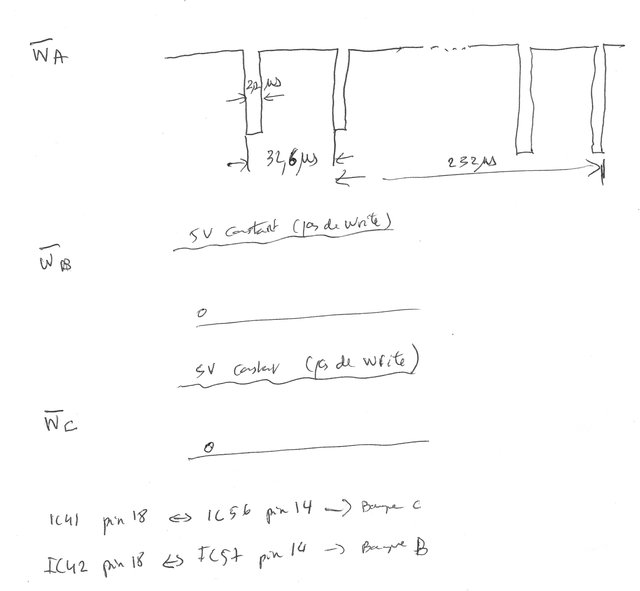 W̅A
3,2 µs
32,6 µs
232 µs
5V constant (pas de write)
W̅B
0
5V constant (pas de write)
W̅C
0
IC41 pin 18 ⇔ IC56 pin 14 → Banque C
IC42 pin 18 ⇔ IC57 pin 14 → Banque B